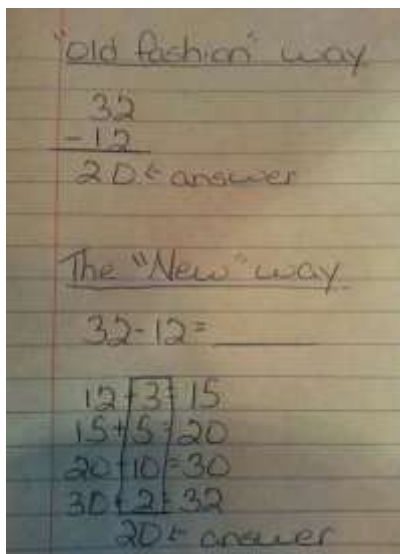 "old fashion" way
32
-12
20 ← answer
The "New" way
32-12=
12+3=15
15+5=20
20+10=30
30+2=32
20 ← answer